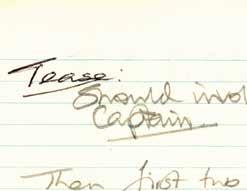 Tease:
Should invol
Captain
Then first two